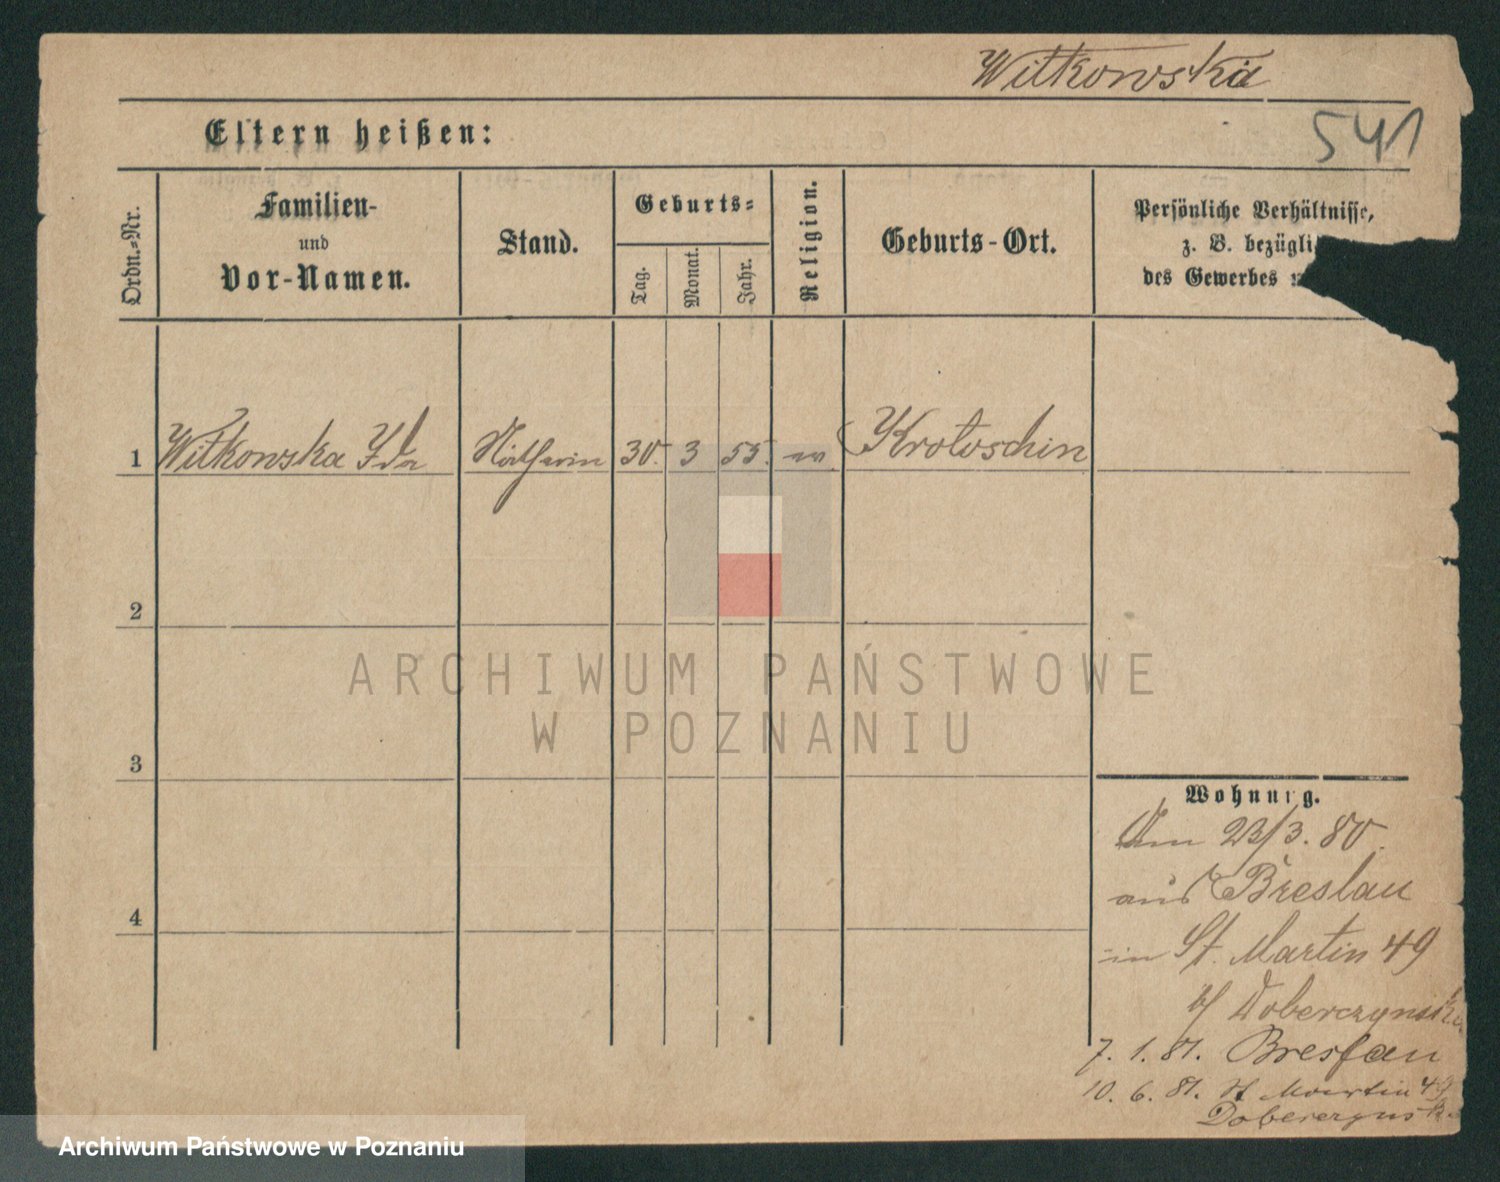 Witkowska
541
Eltern heißen:
Ordn.-Nr.
Familien-
und
Vor-Namen.
Stand.
Geburts-
Tag.
Monat.
Jahr.
Religion.
Geburts-Ort.
Persönliche Verhältnisse,
z. B. bezügli
des Gewerbes
1 Witkowska Ida Näherin 30. 3 55. ev Krotoschin
2
3
4
Wohnung.
Am 23/3. 80.
aus Breslau
in St. Martin 49
b/ Doberczynska
7. 1. 81. Breslau
10. 6. 81. St Martin 49
ARCHIWUM PAŃSTWOWE
W POZNANIU
Archiwum Państwowe w Poznaniu